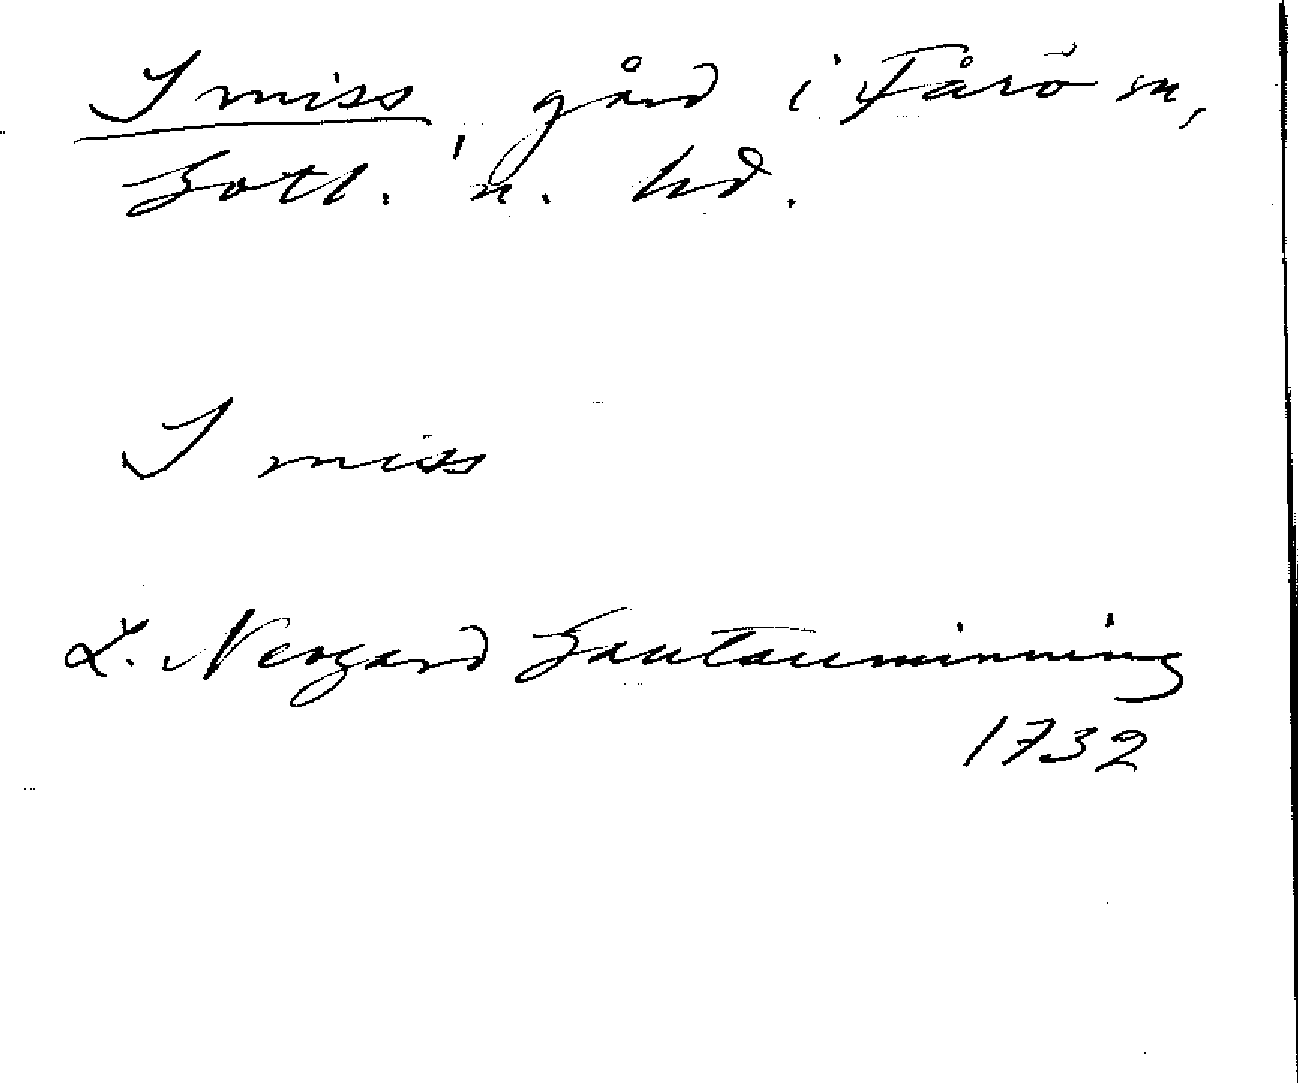 Imiss, gård i Fårö sn,
Gotl. n. hd.
I miss
L. Neogard Gautauminning
1732